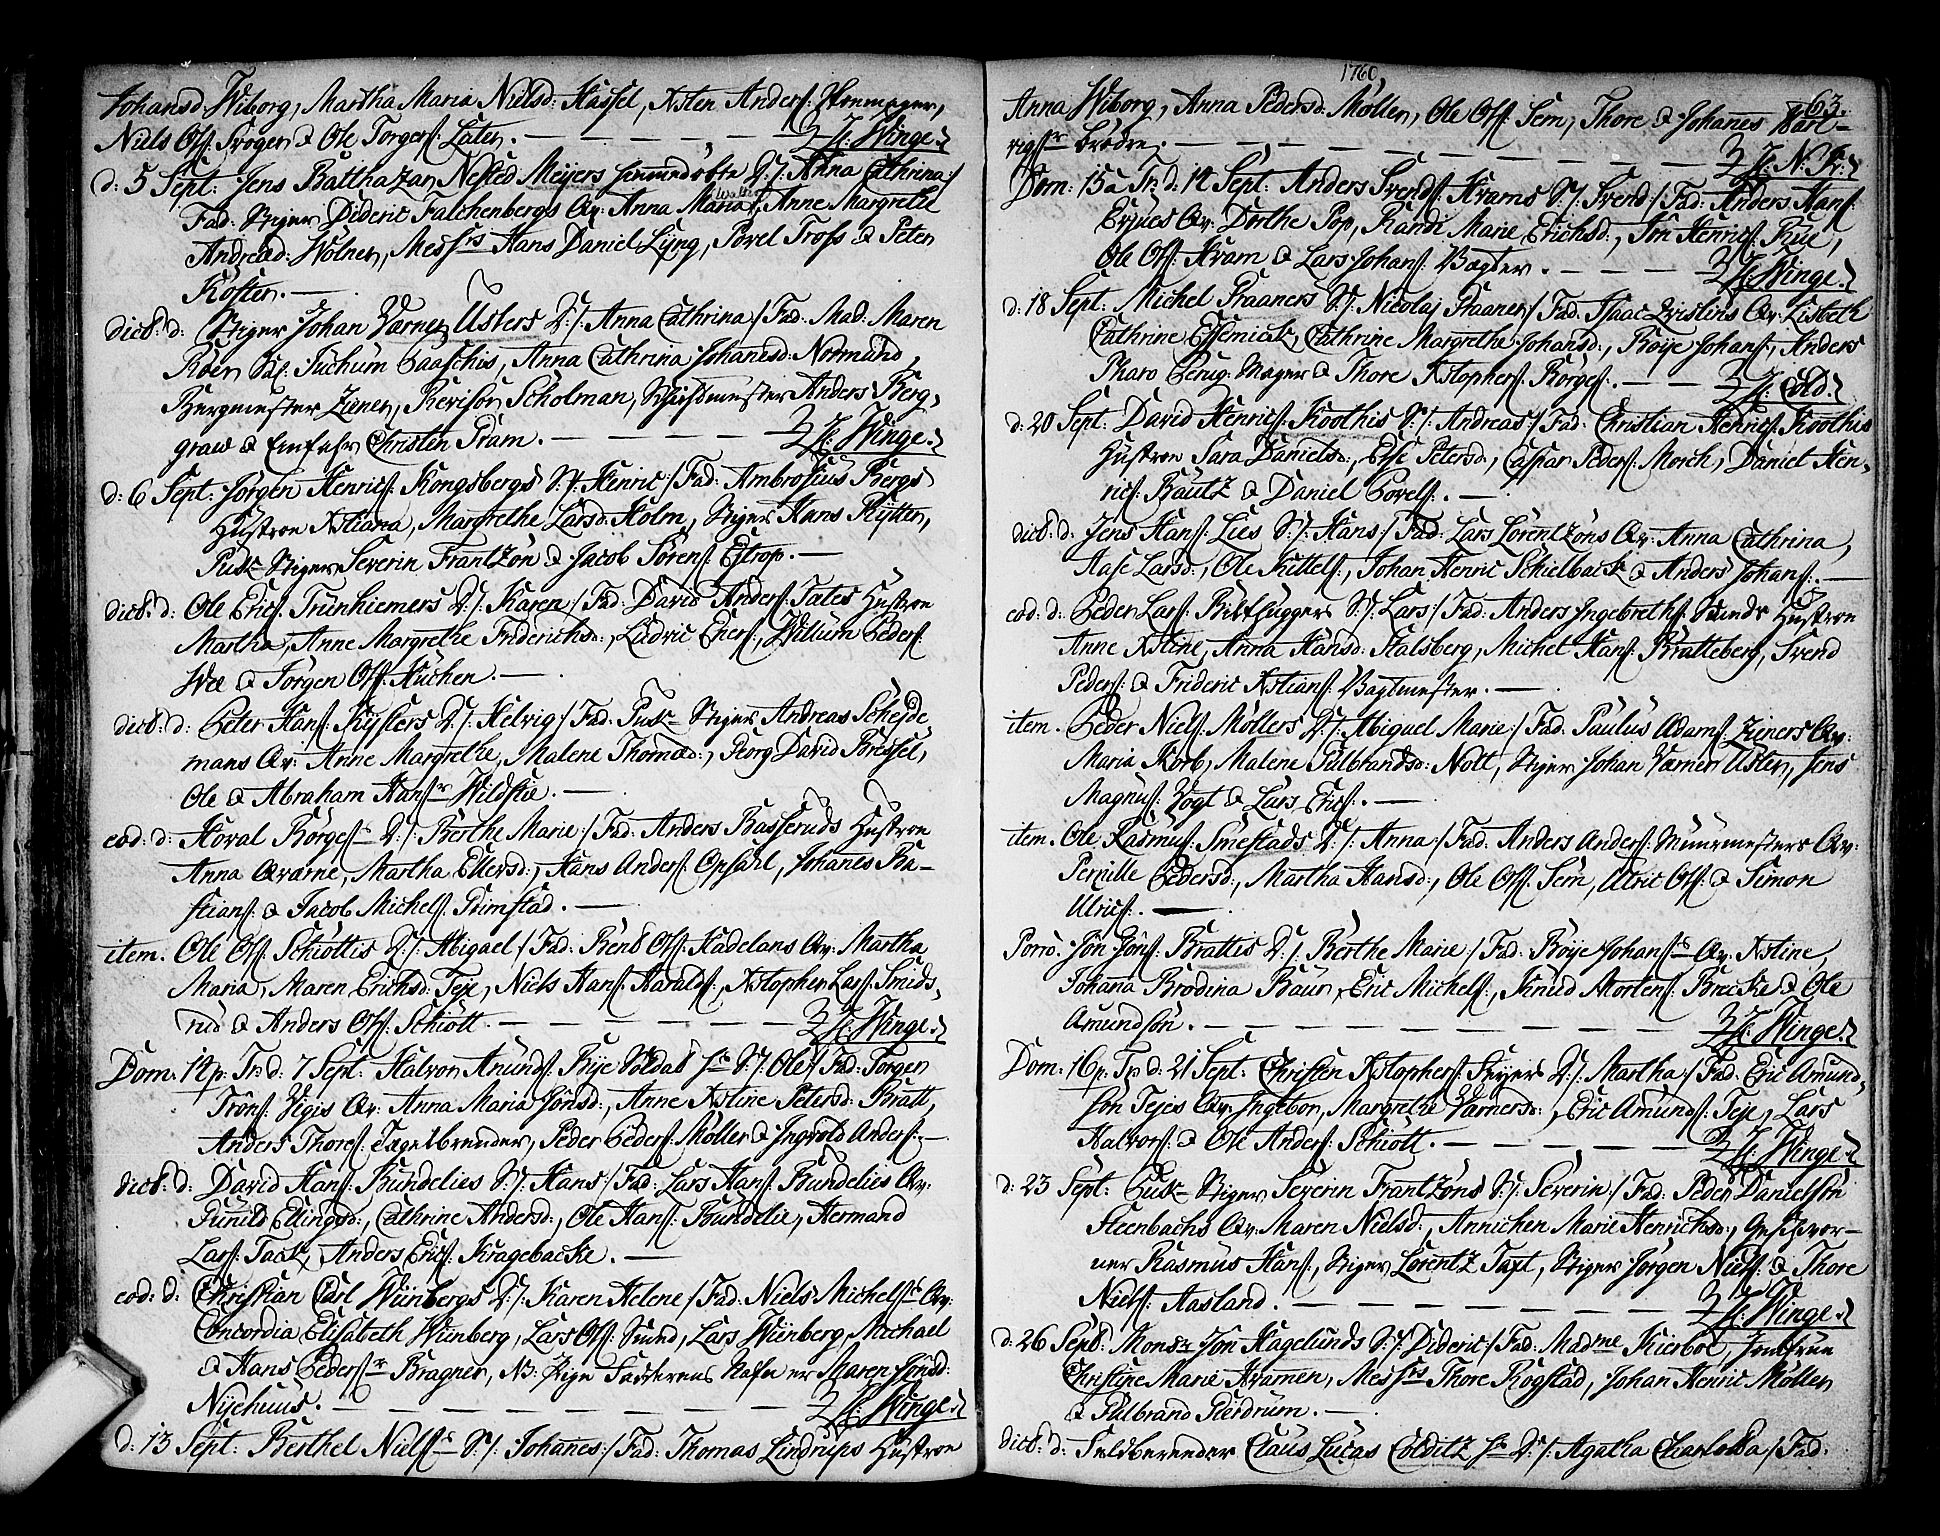 Johansd: Wiborg, Martha Maria Nielsd: Hassel, Xsten Anders:
Niels Ols: Skogen & Ole Torgers: Laten. — H: Winge.
d: 5 Sept: Jens Balthazar Nested Meyers hiemmedøbte D:/: Anna Cathrina:/
Fad: Stiger Dideric Falchenbergs Qv: Anna Maria, Anne Margrethe
Andread: Wölner, Messrs Hans Daniel Lÿng, Povel Tross & Peter
Köster. —
dict: d: Stiger Johan Værner Usters D:/: Anna Cathrina:/ Fad: Mad: Maren
Röer Sal: Juchum Caaschis, Anna Cathrina Johanesd: Normand,
Bergmester Ziener, Revisor Scholman, Anders Berg-
graw & Christen Pram. — H: Winge.
d: 6 Sept: Jørgen Henrics: Kongsbergs S:/: Henric:/ Fad: Ambrosius Bergs
Hustroe Xstiana, Margrethe Larsd: Holm, Stiger Hans Rytter,
Puk- Stiger Severin Frantzøn & Jacob Sørens: Estrop. —
dict: d: Ole Erics: Trunhiemers D:/: Karen:/ Fad: David Anders: Tates Hustroe
Martha, Anne Margrethe Friderichsd:, Ludvic Eners:, Willum Peders:
Wee & Jørgen Ols: Kuchen. —
dict: d: Peter Hans: Kislers D:/: Helvig:/ Fad: Puk- Stiger Andreas Schejde
mans Qv: Anne Margrethe, Malene Thomæd:, Georg David Bressel,
Ole & Abraham Hansr Wildstie. —
eod: d: Hoval Børges- D:/: Berthe Marie:/ Fad: Anders Basseruds Hustroe
Anna Qvarne, Martha Ellersd:, Hans Anders: Opsahl, Johanes Ba-
stians: & Jacob Michels: Grimstad. —
item. Ole Ols: Schiøttis D:/: Abigael:/ Fad: Bent Ols: Hadelans Qv: Martha
Maria, Maren Erichsd: Teje, Niels Hans: Haralds:, Xstopher Lars: Smids-
rud & Anders Ols: Schiøtt. — H: Winge.
Dom: 14 p: Tr: d: 7 Sept: Halvor Amunds: Rije Soldat S:/: Ole:/ Fad: Torger
Trons: Vigis Qv: Anna Maria Jønsd:, Anne Xstine Petersd: Bratt,
Anders Thores: Tagelbrender, Peder Peders: Møller & Ingvold Anders: —
dict: d: David Hans: Bundelies S:/: Hans:/ Fad: Lars Hans: Bundelies Qv:
Gunild Ellingsd:, Cathrine Andersd:, Ole Hans: Bundelie, Hermand
Lars: Tack, Anders Erics: Kragebacke. —
eod: d: Christian Carl Wünbergs D:/: Karen Helene:/ Fad: Niels Michels- Qv:
Concordia Elisabeth Wünberg, Lars Ols: Sund, Lars Wünberg, Michael
& Hans Pedersr Bragner, NB. Pige Fadderens Nafn er Maren Jonsd:
Nyehuus. — H: Winge.
d: 13 Sept: Berthel Niels- S:/: Johanes:/ Fad: Thomas Lindrups Hustroe
1760
63.
Anna Wiborg, Anna Pedersd: Møller, Ole Ols: Sem, Thore & Johanes
Brødre. — H: N. K.
Dom: 15 a Tr: d: 14 Sept: Anders Svends: Krams S:/: Svend:/ Fad: Anders Hans:
Erjues Qv: Dorthe Pop, Randi Marie Erichsd:, Jon Henrics: Rue,
Ole Ols: Kram & Lars Johans: Vægter. — H: Winge.
d: 18 Sept: Michel Praaners S:/: Nicolaj Praaner:/ Fad: Isaac Zvistins Qv: Lisbeth
Cathrine Essemiak, Cathrine Margrethe Johansd:, Boije Johans:, Anders
Pharo Perug: Mager & Thore Xstophers: Børges:. — H: Cold.
d: 20 Sept: David Henrics: Koothis S:/: Andreas:/ Fad: Christian Henrics: Koothis
Hustroe Sara Danielsd:, Else Petersd:, Caspar Peders: Morch, Daniel Hen-
rics: Bautz & Daniel Povels:. —
dict: d: Jens Hans: Lies S:/: Hans:/ Fad: Lars Lorentzøns Qv: Anna Cathrina,
Aase Larsd:, Ole Kittels:, Johan Henric Schielback & Anders Johans:. —
eod: d: Peder Lars: Bilthuggers S:/: Lars:/ Fad: Anders Ingebreths: Hustroe
Anne Xstine, Anna Hansd: Kalsberg, Michel Hans: Bratteberg, Svend
Peders: & Frideric Xstians: Vagtmester. —
item. Peder Niels: Møllers D:/: Abiguel Marie:/ Fad: Paulus Adams: Zieners Qv:
Maria Korb, Malene Gulbrandsd: Nott, Stiger Johan Værner Uster, Jens
Magnus: Vogt & Lars Erics:. —
item. Ole Rasmus: Smestads D:/: Anna:/ Fad: Anders Anders: Muurmesters Qv:
Pernille Pedersd:, Martha Hansd:, Ole Ols: Sem, Ulric Ols: & Simon
Ulrics:. —
Porro. Jøn Jøns: Brattis D:/: Berthe Marie:/ Fad: Böije Johans- Qv: Xstine,
Johana Brodina Baur, Eric Michels:, Knud Mortens: Bracke & Ole
Amundsøn. — H: Winge.
Dom: 16 p: Tr: d: 21 Sept: Christen Xstophers: Feyers D:/: Martha:/ Fad: Eric Amund-
søn Tejes Qv: Ingebor, Margrethe Værnersd:, Eric Amunds: Teje, Lars
Halvors: & Ole Anders: Schiøtt. — H: Winge.
d: 23 Sept: Puk- Stiger Severin Frantzøns S:/: Severin:/ Fad: Peder Danielsøn
Steenbachs Qv: Maren Nielsd:, Annichen Marie Henrichsd:, Geschvor-
ner Rasmus Hans:, Stiger Lorentz Taxt, Stiger Jørgen Niels: & Thore
Niels: Aasland. — H: Winge.
d: 26 Sept: Monsr Jøn Hagelunds S:/: Dideric:/ Fad: Madme Kierboe, Jomfrue
Christine Marie Kramer, Messrs Thore Rogstad, Johan Henric Møller
& Gulbrand Gierdrum. —
dict: d: Sulbrender Claus Lucas Colditz D:/: Agatha Charlotta:/ Fad: